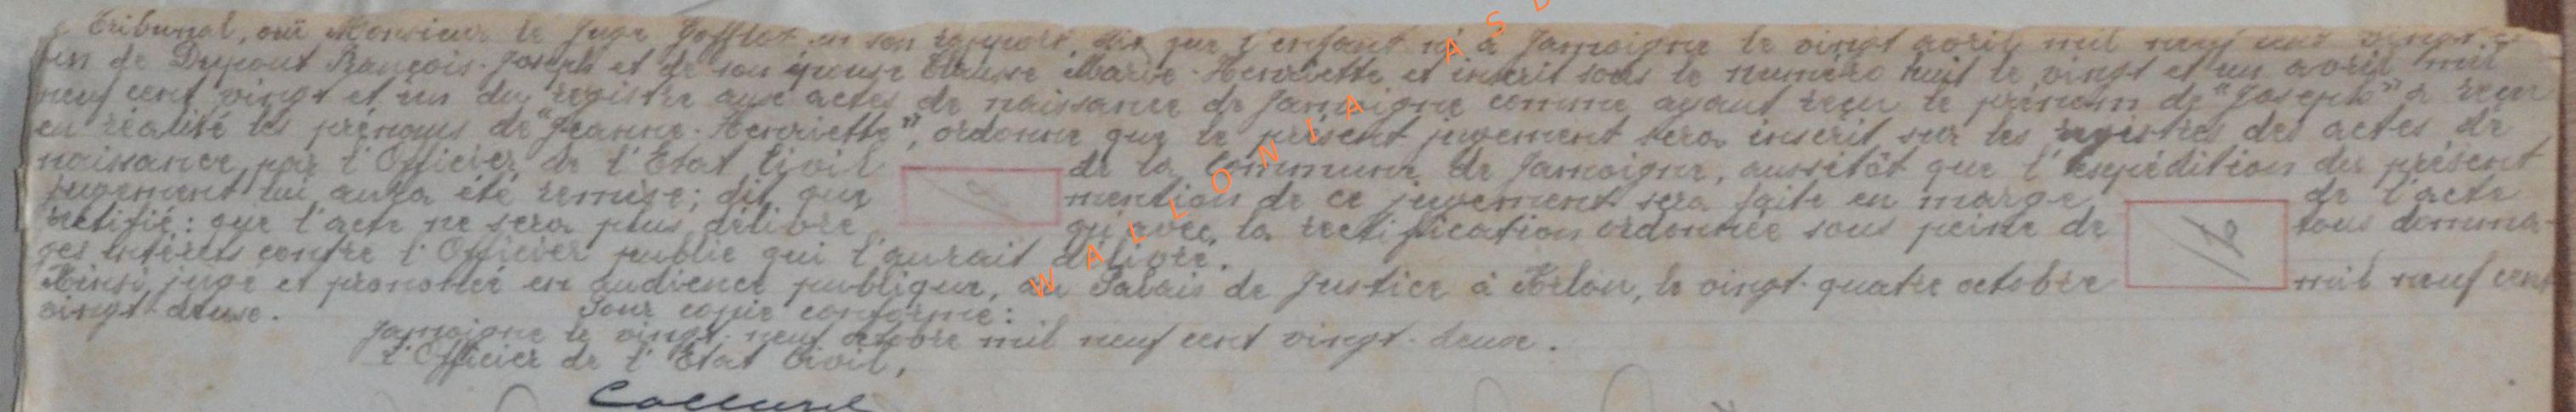 Tribunal, ouï Monsieur le Juge en son rapport, dit que l'enfant né à Jamoigne le vingt avril mil neuf cent vingt
de Dupont François-Joseph et de son épouse Marie-Henriette et inscrit sous le numéro huit le vingt et un avril mil
neuf cent vingt et un du registre aux actes de naissance de Jamoigne comme ayant reçu le prénom de "Joseph" a reçu
en réalité les prénoms de "Jeanne-Henriette", ordonne que le présent jugement sera inscrit sur les registres des actes de
naissance par l'Officier de l'Etat Civil de la Commune de Jamoigne, aussitôt que l'expédition du présent
jugement lui aura été remise; dit que mention de ce jugement sera faite en marge de l'acte
rectifié: que l'acte ne sera plus délivré qu'avec la rectification ordonnée sous peine de tous domma-
ges intérêts contre l'Officier public qui l'aurait délivré.
Ainsi jugé et prononcé en audience publique, au Palais de Justice à Arlon, le vingt-quatre octobre mil neuf cent
vingt deux. Pour copie conforme:
Jamoigne le vingt-neuf octobre mil neuf cent vingt-deux.
L'Officier de l'Etat Civil,
WALLONIA ASB